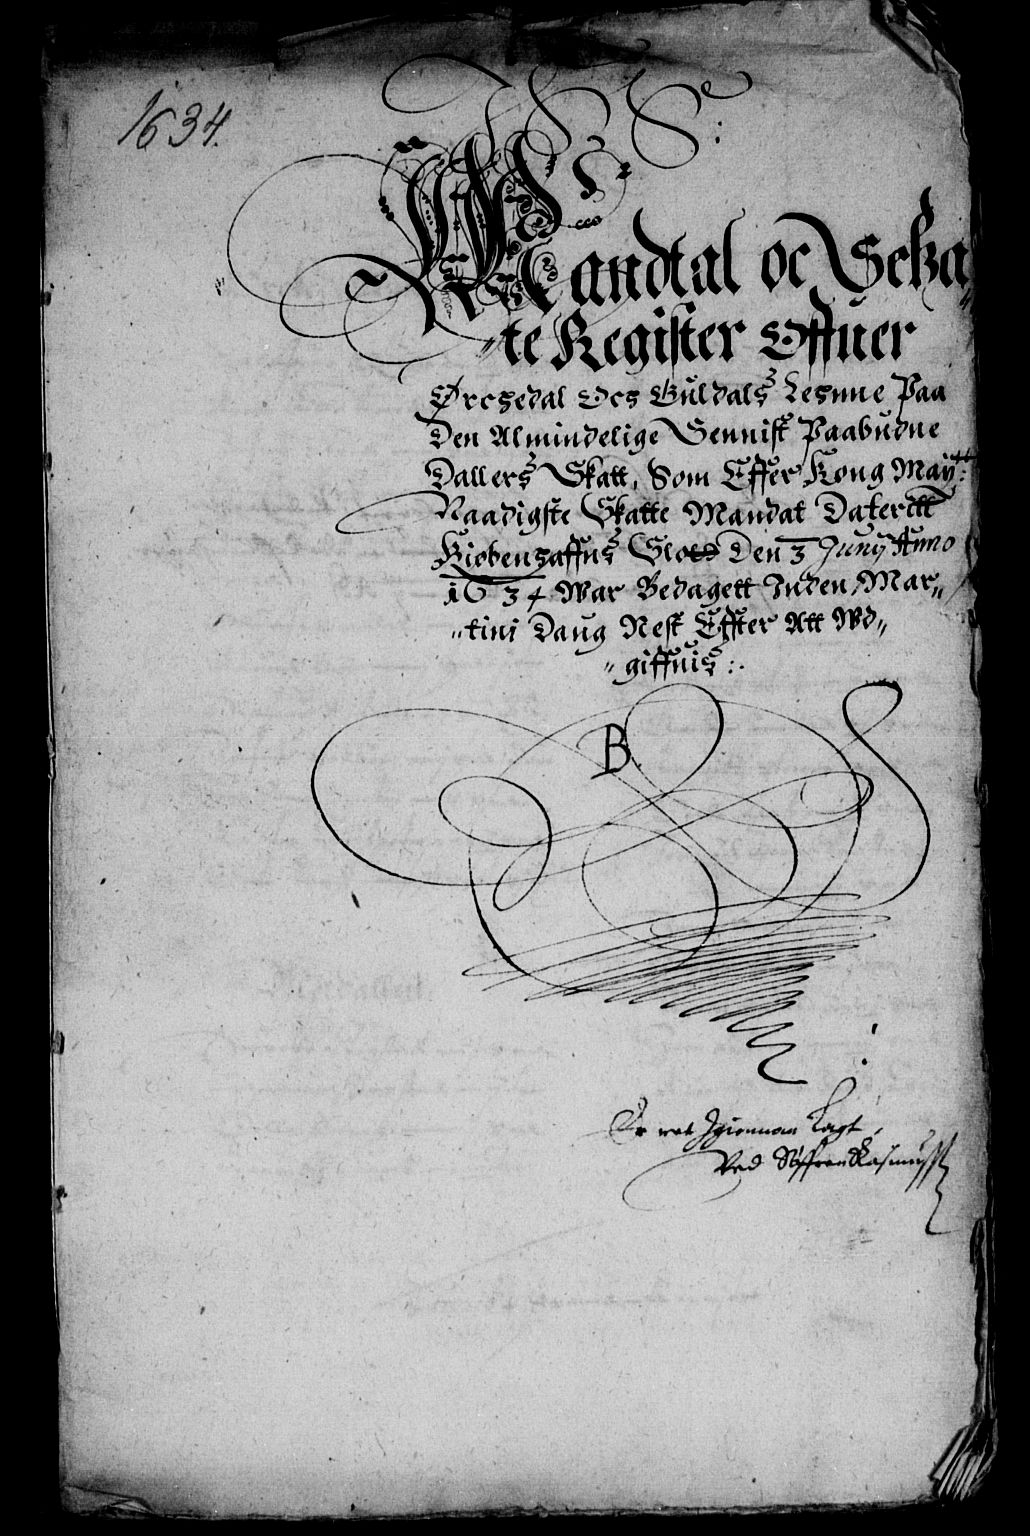 1634.
J H S:
Mandtal oc Scka„
„te Register Offuer
Ørchedal Och Guldals Lehnne Paa
Den Almindelige Sennist Paabudne
Dallers Skatt, Som Effter Kong Maytt:
Naadigste Skatte Mandat Daterett
Kiøbenhaffns Slott Den 3 Junÿ Anno
1634 War Bedagett Inden Mar„
„tini Daug Nest Effter Att Wd„
„giffuis :.
B.
Er vel Igiennom Lagt,
Ved Søffren Rasmuss